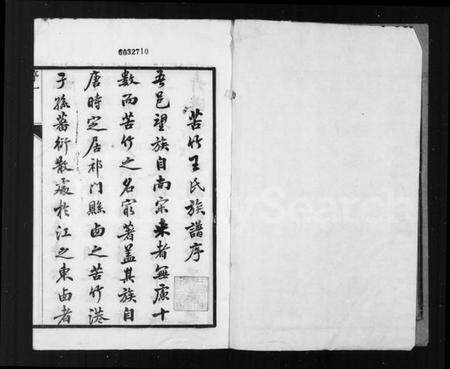 6032710
苦竹王氏族譜序
吾邑望族自南宋来者無慮十
數而苦竹之名宗著蓋其族自
唐時定居祁門縣西之苦竹港
子孫蕃衍散處於江之東西者